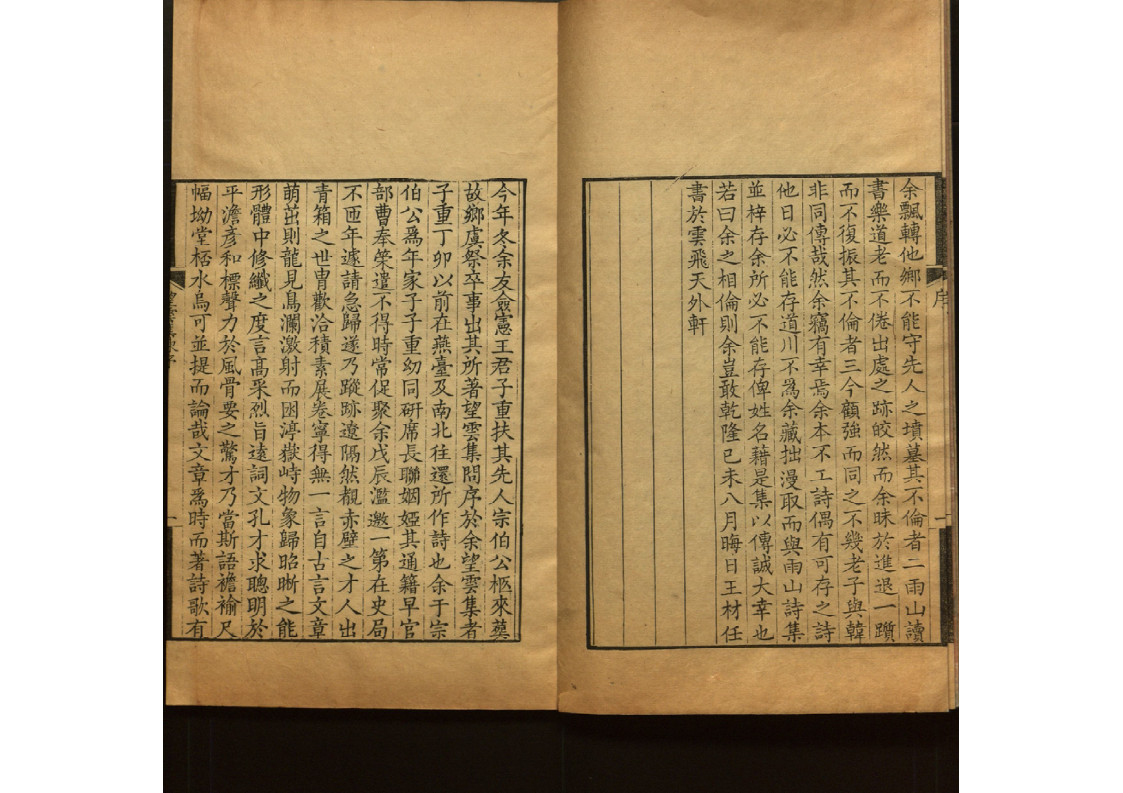 余飄轉他鄉不能守先人之墳墓其不倫者二雨山讀
書樂道老而不倦出處之跡皎然而余昧於進退一躓
而不復振其不倫者三今顧強而同之不幾老子與韓
非同傳哉然余竊有幸焉余本不工詩偶有可存之詩
他日必不能存道川不為余藏拙漫取而與雨山詩集
並梓存余所必不能存俾姓名藉是集以傳誠大幸也
若曰余之相倫則余豈敢乾隆己未八月晦日王材任
書於雲飛天外軒
序
一
今年冬余友僉憲王君子重扶其先人宗伯公柩來葬
故鄉虞祭卒事出其所著望雲集問序於余望雲集者
子重丁卯以前在燕臺及南北往還所作詩也余于宗
伯公為年家子子重幼同研席長聯姻婭其通籍早官
部曹奉榮遣不得時常促聚余戊辰濫邀一第在史局
不匝年遽請急歸遂乃蹤跡遼隔然覩赤壁之才人出
青箱之世冑歡洽積素展卷寧得無一言自古言文章
萌茁則龍見鳥瀾激射而困渟嶽峙物象歸昭晣之能
形體中修纖之度言高采烈旨遠詞文孔才求聰明於
平澹彥和標聲力於風骨要之驚才乃當斯語襜褕尺
幅坳堂桮水烏可並提而論哉文章為時而著詩歌有